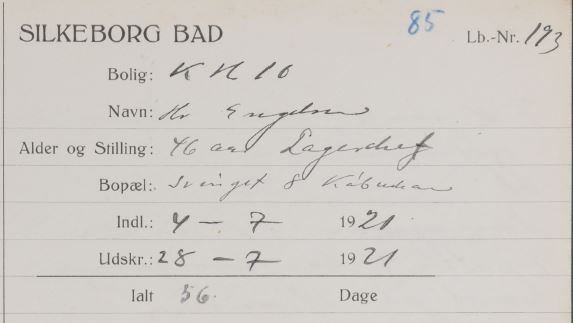 85
SILKEBORG BAD Lb.-Nr. 193
Bolig: K H 10
Navn: Hr Engelsen
Alder og Stilling: 46 aar Lagerchef
Bopæl: Svinget 8 København
Indl.: 4 – 7 1921
Udskr.: 28 – 7 1921
Ialt 56 Dage